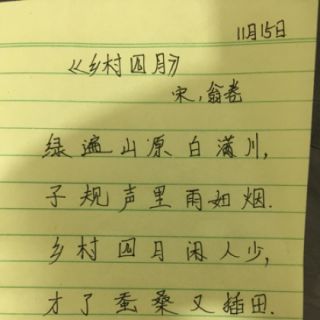 11月15日
《乡村四月》
宋,翁卷
绿遍山原白满川,
子规声里雨如烟.
乡村四月闲人少,
才了蚕桑又插田.